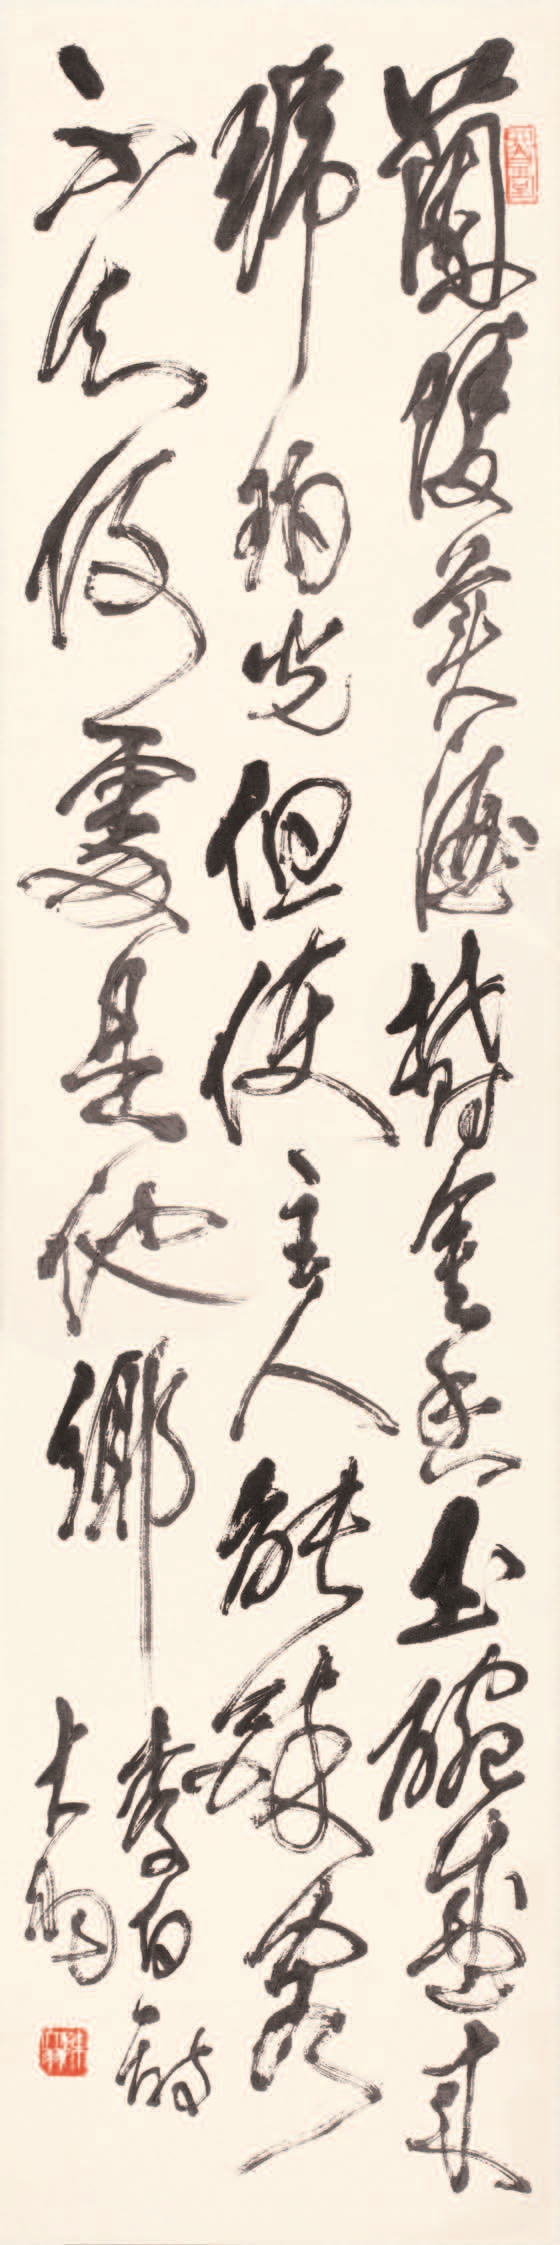 蘭陵美酒鬱金香玉碗盛來
琥珀光但使主人能醉客
不知何處是他鄉
李白詩
大羽